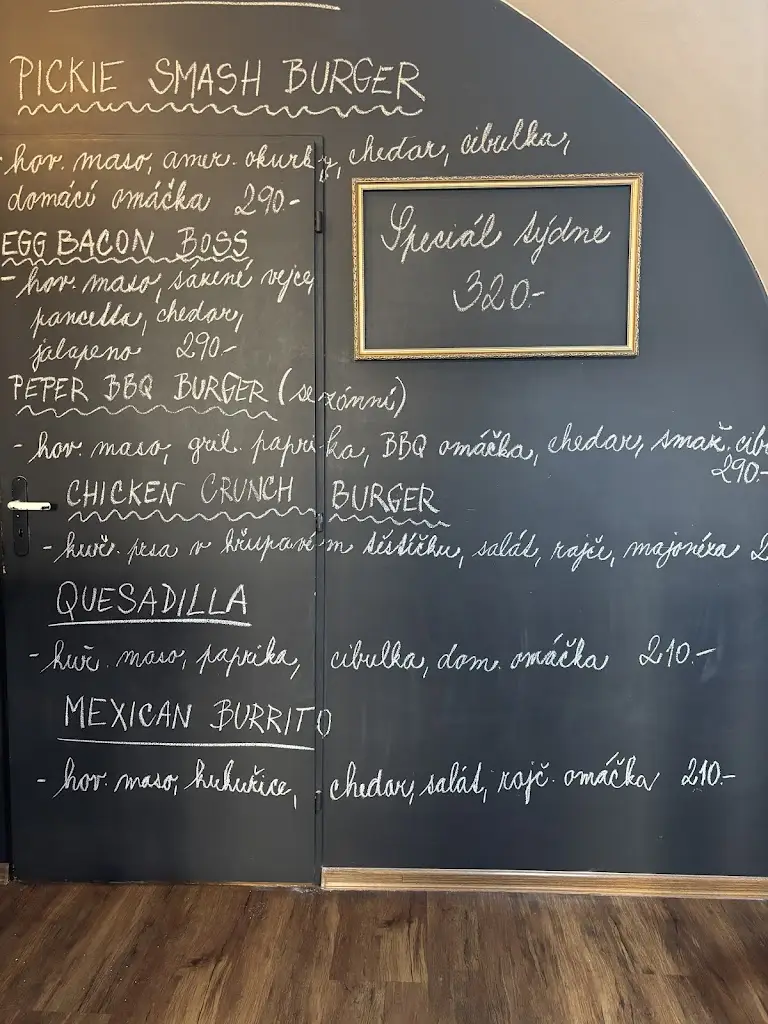 PICKIE SMASH BURGER
- hov. maso, amer. okurky, chedar, cibulka,
domácí omáčka 290.-
EGG BACON BOSS
- hov. maso, sázené vejce,
pancetta, chedar,
jalapeno 290.-
Speciál týdne
320.-
PEPER BBQ BURGER (sezónní)
- hov. maso, gril. paprika, BBQ omáčka, chedar, smaž. cib
290.-
CHICKEN CRUNCH BURGER
- kuř. prsa v křupavém těstíčku, salát, rajče, majonéza 2
QUESADILLA
- kuř. maso, paprika, cibulka, dom. omáčka 210.-
MEXICAN BURRITO
- hov. maso, kukuřice, chedar, salát, rajč. omáčka 210.-